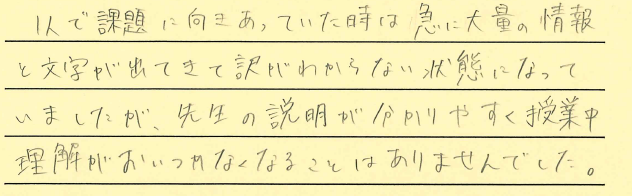 1人で課題に向きあっていた時は急に大量の情報
と文字が出てきて訳がわからない状態になって
いましたが、先生の説明が分かりやすく授業中
理解がおいつかなくなることはありませんでした。